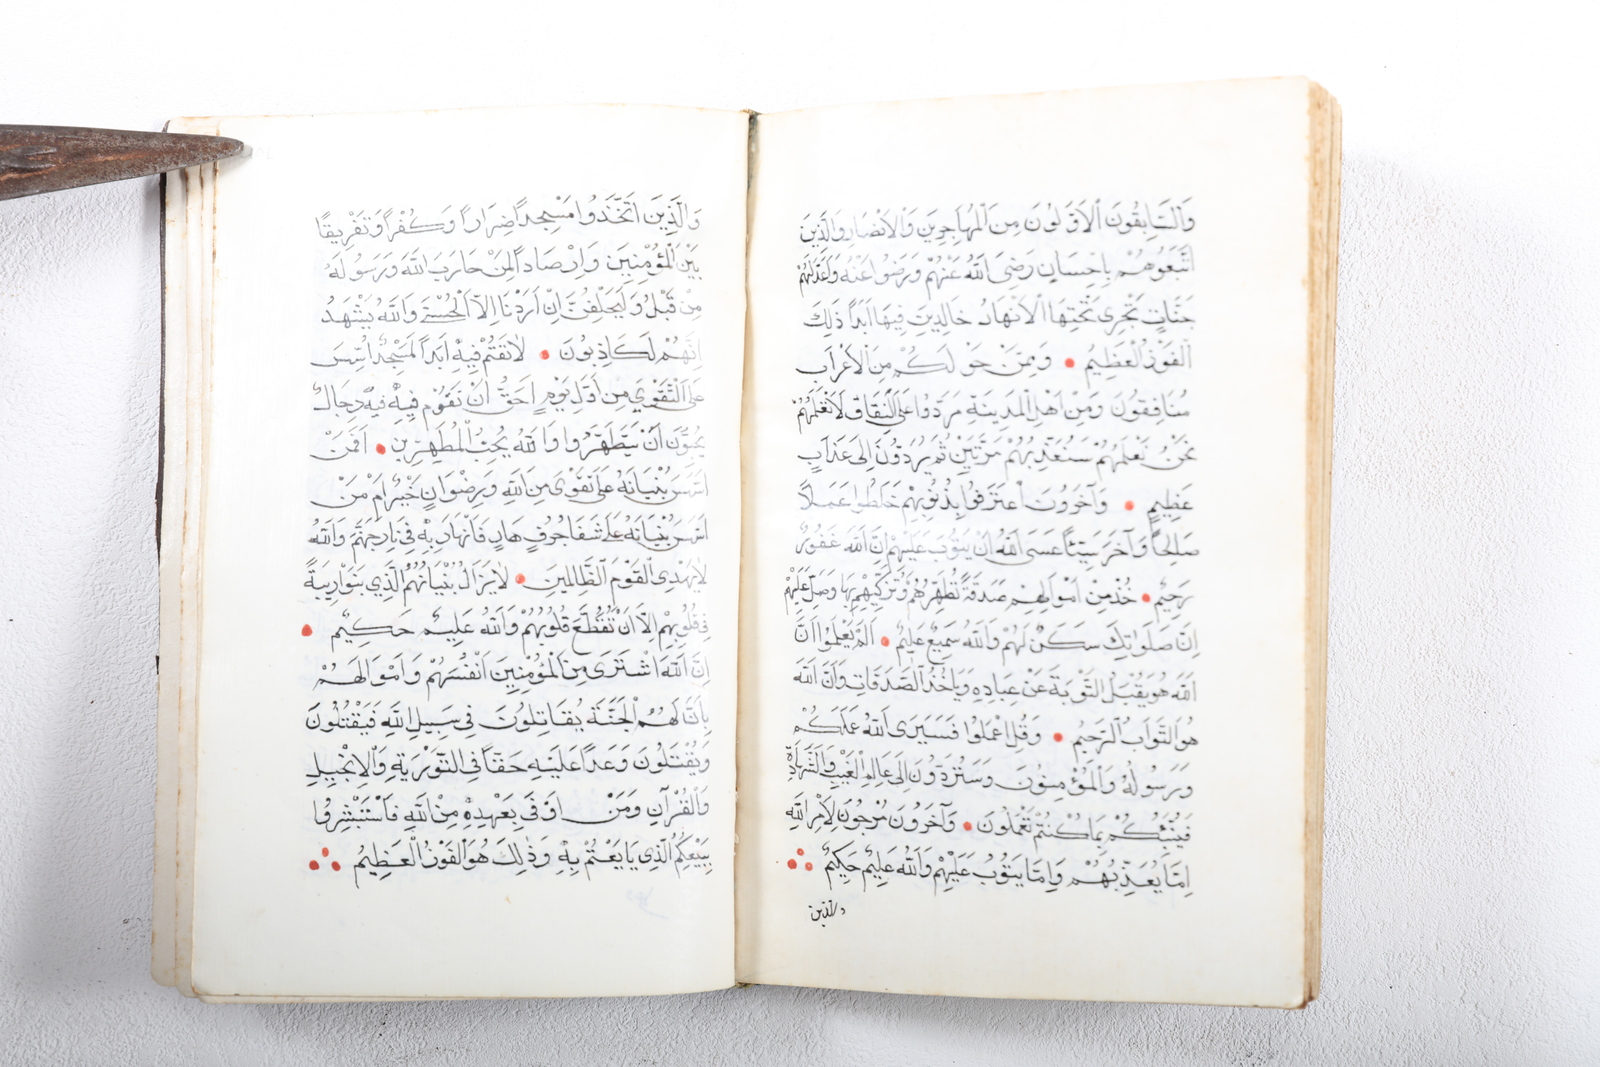 وَالسَّابِقُونَ الْاَوَّلُونَ مِنَ الْمُهَاجِرِينَ وَالْاَنْصَارِ وَالَّذِينَ
اتَّبَعُوهُمْ بِاِحْسَانٍ رَضِىَ اللّٰهُ عَنْهُمْ وَرَضُوا عَنْهُ وَاَعَدَّ لَهُمْ
جَنَّاتٍ تَجْرِى تَحْتَهَا الْاَنْهَارُ خَالِدِينَ فِيهَا اَبَدًا ذٰلِكَ
الْفَوْزُ الْعَظِيمُ وَمِمَّنْ حَوْلَكُمْ مِنَ الْاَعْرَابِ
مُنَافِقُونَ وَمِنْ اَهْلِ الْمَدِينَةِ مَرَدُوا عَلَى النِّفَاقِ لَا تَعْلَمُهُمْ
نَحْنُ نَعْلَمُهُمْ سَنُعَذِّبُهُمْ مَرَّتَيْنِ ثُمَّ يُرَدُّونَ اِلٰى عَذَابٍ
عَظِيمٍ وَآخَرُونَ اعْتَرَفُوا بِذُنُوبِهِمْ خَلَطُوا عَمَلًا
صَالِحًا وَآخَرَ سَيِّئًا عَسَى اللّٰهُ اَنْ يَتُوبَ عَلَيْهِمْ اِنَّ اللّٰهَ غَفُورٌ
رَحِيمٌ خُذْ مِنْ اَمْوَالِهِمْ صَدَقَةً تُطَهِّرُهُمْ وَتُزَكِّيهِمْ بِهَا وَصَلِّ عَلَيْهِمْ
اِنَّ صَلَوٰتَكَ سَكَنٌ لَهُمْ وَاللّٰهُ سَمِيعٌ عَلِيمٌ اَلَمْ يَعْلَمُوا اَنَّ
اللّٰهَ هُوَ يَقْبَلُ التَّوْبَةَ عَنْ عِبَادِهِ وَيَاْخُذُ الصَّدَقَاتِ وَاَنَّ اللّٰهَ
هُوَ التَّوَّابُ الرَّحِيمُ وَقُلِ اعْمَلُوا فَسَيَرَى اللّٰهُ عَمَلَكُمْ
وَرَسُولُهُ وَالْمُؤْمِنُونَ وَسَتُرَدُّونَ اِلٰى عَالِمِ الْغَيْبِ وَالشَّهَادَةِ
فَيُنَبِّئُكُمْ بِمَا كُنْتُمْ تَعْمَلُونَ وَآخَرُونَ مُرْجَوْنَ لِاَمْرِ اللّٰهِ
اِمَّا يُعَذِّبُهُمْ وَاِمَّا يَتُوبُ عَلَيْهِمْ وَاللّٰهُ عَلِيمٌ حَكِيمٌ
والذين
وَالَّذِينَ اتَّخَذُوا مَسْجِدًا ضِرَارًا وَكُفْرًا وَتَفْرِيقًا
بَيْنَ الْمُؤْمِنِينَ وَاِرْصَادًا لِمَنْ حَارَبَ اللّٰهَ وَرَسُولَهُ
مِنْ قَبْلُ وَلَيَحْلِفُنَّ اِنْ اَرَدْنَا اِلَّا الْحُسْنٰى وَاللّٰهُ يَشْهَدُ
اِنَّهُمْ لَكَاذِبُونَ لَا تَقُمْ فِيهِ اَبَدًا لَمَسْجِدٌ اُسِّسَ
عَلَى التَّقْوٰى مِنْ اَوَّلِ يَوْمٍ اَحَقُّ اَنْ تَقُومَ فِيهِ فِيهِ رِجَالٌ
يُحِبُّونَ اَنْ يَتَطَهَّرُوا وَاللّٰهُ يُحِبُّ الْمُطَّهِّرِينَ اَفَمَنْ
اَسَّسَ بُنْيَانَهُ عَلٰى تَقْوٰى مِنَ اللّٰهِ وَرِضْوَانٍ خَيْرٌ اَمْ مَنْ
اَسَّسَ بُنْيَانَهُ عَلٰى شَفَا جُرُفٍ هَارٍ فَانْهَارَ بِهِ فِى نَارِ جَهَنَّمَ وَاللّٰهُ
لَا يَهْدِى الْقَوْمَ الظَّالِمِينَ لَا يَزَالُ بُنْيَانُهُمُ الَّذِى بَنَوْا رِيبَةً
فِى قُلُوبِهِمْ اِلَّا اَنْ تُقَطَّعَ قُلُوبُهُمْ وَاللّٰهُ عَلِيمٌ حَكِيمٌ
اِنَّ اللّٰهَ اشْتَرٰى مِنَ الْمُؤْمِنِينَ اَنْفُسَهُمْ وَاَمْوَالَهُمْ
بِاَنَّ لَهُمُ الْجَنَّةَ يُقَاتِلُونَ فِى سَبِيلِ اللّٰهِ فَيَقْتُلُونَ
وَيُقْتَلُونَ وَعْدًا عَلَيْهِ حَقًّا فِى التَّوْرٰيةِ وَالْاِنْجِيلِ
وَالْقُرْآنِ وَمَنْ اَوْفٰى بِعَهْدِهِ مِنَ اللّٰهِ فَاسْتَبْشِرُوا
بِبَيْعِكُمُ الَّذِى بَايَعْتُمْ بِهِ وَذٰلِكَ هُوَ الْفَوْزُ الْعَظِيمُ